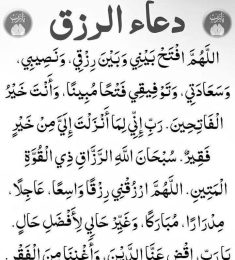 دعاء الرزق
اللَّهُمَّ افْتَحْ بَيْنِي وَبَيْنَ رِزْقِي. وَنَصِيبِي.
وَسَعَادَتِي. وَتَوْفِيقِي فَتْحًا مُبِينًا. وَأَنْتَ خَيْرُ
الْفَاتِحِينَ. رَبِّ إِنِّي لِمَا أَنْزَلْتَ إِلَيَّ مِنْ خَيْرٍ
فَقِيرٌ. سُبْحَانَ اللهِ الرَّزَّاقِ ذِي الْقُوَّةِ
الْمَتِينِ. اللَّهُمَّ ارْزُقْنِي رِزْقًا وَاسِعًا. عَاجِلًا.
مِدْرَارًا. مُبَارَكًا. وَغَيِّرْ حَالِي لِأَفْضَلِ حَالٍ.
يَارَبِّ. اقْضِ عَنَّا الدَّيْنَ. وَأَغْنِنَا مِنَ الْفَقْرِ.